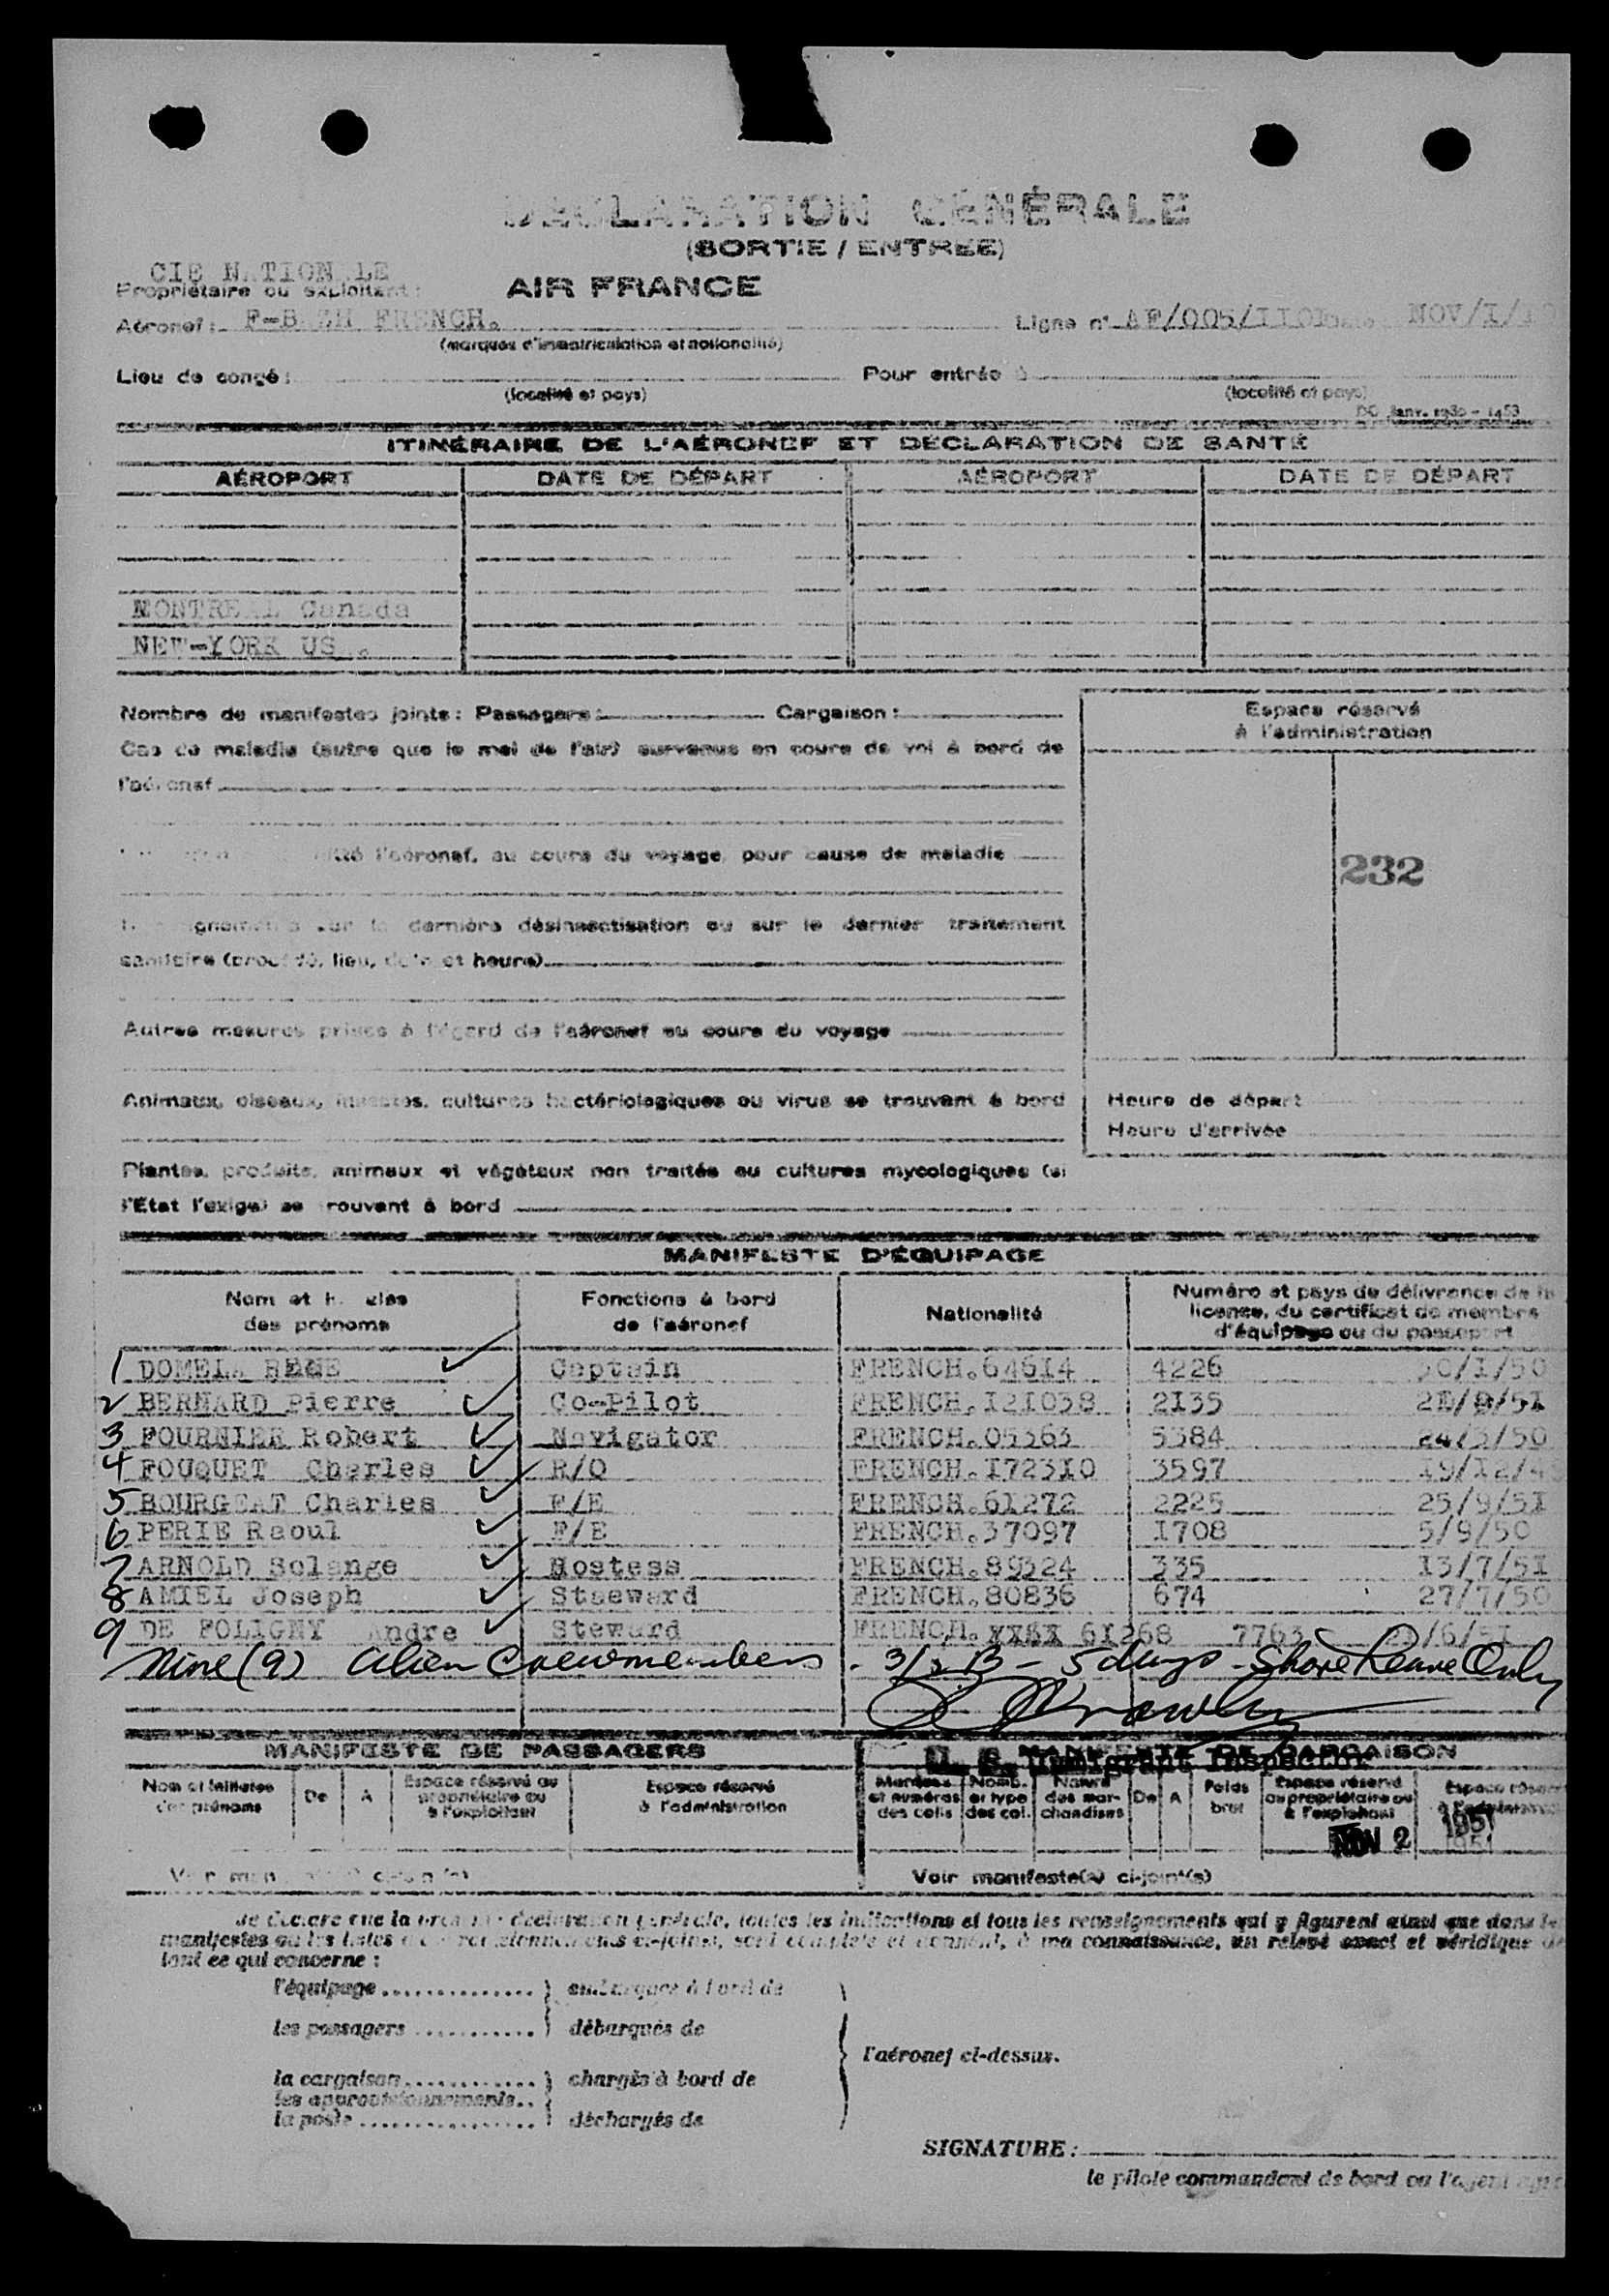 DÉCLARATION GÉNÉRALE
(SORTIE / ENTRÉE)
CIE NATIONALE
Propriétaire ou exploitant : AIR FRANCE
Aéronef : FRENCH.
(marques d'immatriculation et nationalité)
Ligne n° AF/005/1101 NOV/I/
Lieu de congé : Pour entrée à
(localité et pays) (localité et pays)
ITINÉRAIRE DE L'AÉRONEF ET DÉCLARATION DE SANTÉ
AÉROPORT DATE DE DÉPART AÉROPORT DATE DE DÉPART
MONTREAL Canada
NEW-YORK US
Nombre de manifestes joints : Passagers : Cargaison :
Cas de maladie (autre que le mal de l'air) survenus en cours de vol à bord de
l'aéronef
l'aéronef, au cours du voyage, pour cause de maladie
la dernière désinsectisation ou sur le dernier traitement
sanitaire (procédé, lieu, date et heure)
Autres mesures prises à l'égard de l'aéronef au cours du voyage
Animaux, oiseaux, insectes, cultures bactériologiques ou virus se trouvant à bord
Plantes, produits, animaux et végétaux non traités ou cultures mycologiques (si
l'État l'exige) se trouvant à bord
Espace réservé
à l'administration
232
Heure de départ
Heure d'arrivée
MANIFESTE D'ÉQUIPAGE
Nom et initiales
des prénoms
Fonctions à bord
de l'aéronef
Nationalité
Numéro et pays de délivrance de la
licence, du certificat de membre
d'équipage ou du passeport
1 DOMELA RENE Captain FRENCH.64614 4226 /1/50
2 BERNARD Pierre Co-Pilot FRENCH.121038 2135 /51
3 FOURNIER Robert Navigator FRENCH.05363 5384 24/3/50
4 FOUQUET Charles R/O FRENCH.172310 3597 19/12/
5 BOURGEAT Charles F/E FRENCH.61272 2225 25/9/51
6 PERIE Raoul F/E FRENCH.37097 1708 5/9/50
7 ARNOLD Solange Hostess FRENCH.89324 335 13/7/51
8 AMIEL Joseph Staeward FRENCH.80836 674 27/7/50
9 DE FOLIGNY Andre Steward FRENCH. XXXX 61268 7763 /6/51
Nine (9) alien Crewmembers - 3/2 B - 5 days - Shore Leave Only
U. S. Immigrant Inspector
MANIFESTE DE PASSAGERS
MANIFESTE DE CARGAISON
Nom et initiales
des prénoms
De
A
Espace réservé au
propriétaire ou
à l'exploitant
Espace réservé
à l'administration
Marques
et numéros
des colis
Nomb.
et type
des col.
Nature
des mar-
chandises
De
A
Poids
brut
Espace réservé
au propriétaire ou
à l'exploitant
Espace réservé
à l'administration
NOV 2 1951
1951
Voir manifeste(s) ci-joint(s)
Voir manifeste(s) ci-joint(s)
Je déclare que la présente déclaration générale, toutes les indications et tous les renseignements qui y figurent ainsi que dans les
manifestes ou les listes ci-joints, sont complets et donnent, à ma connaissance, un relevé exact et véridique de
tout ce qui concerne :
l'équipage .............. embarqués à bord de
les passagers ........... débarqués de
l'aéronef ci-dessus.
la cargaison ............ chargés à bord de
les approvisionnements..
la poste ................ déchargés de
SIGNATURE :
le pilote commandant de bord ou l'agent